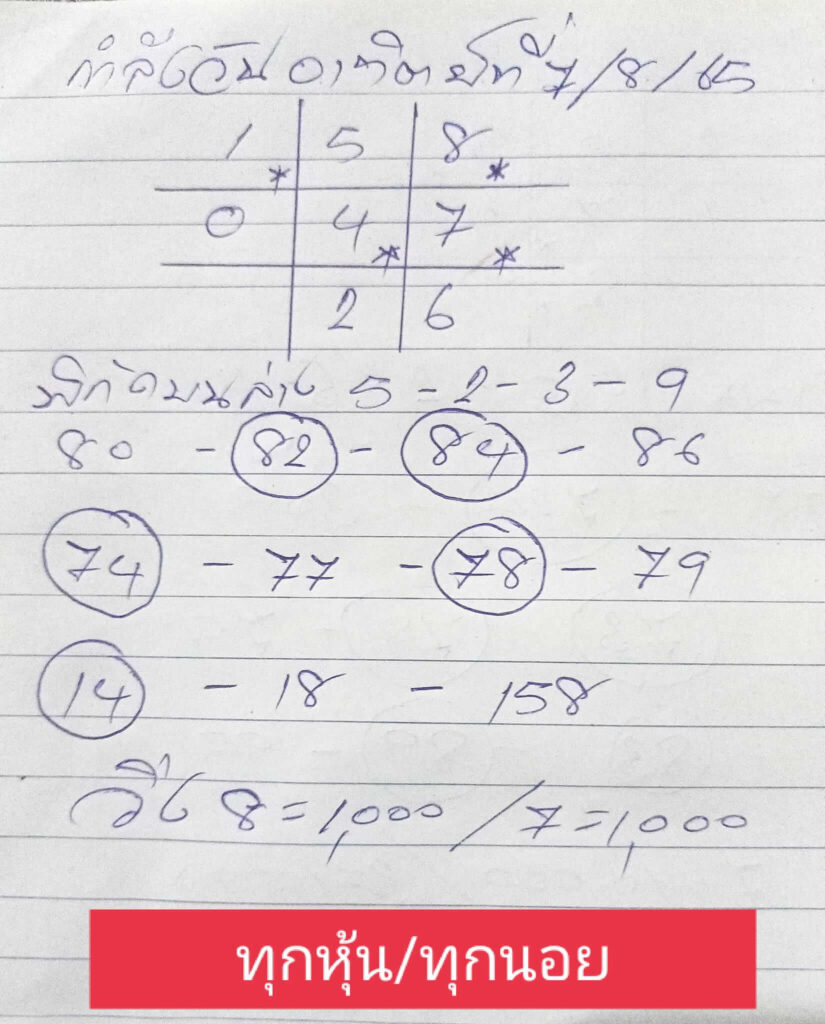 กำลังวันอาทิตย์ที่ 7/8/65
1 5 8
* *
0 4 7
* *
2 6
พิกัดบนล่าง 5-2-3-9
80 - 82 - 84 - 86
74 - 77 - 78 - 79
14 - 18 - 158
วิ่ง 8=1,000/7=1,000
ทุกหุ้น/ทุกนอย